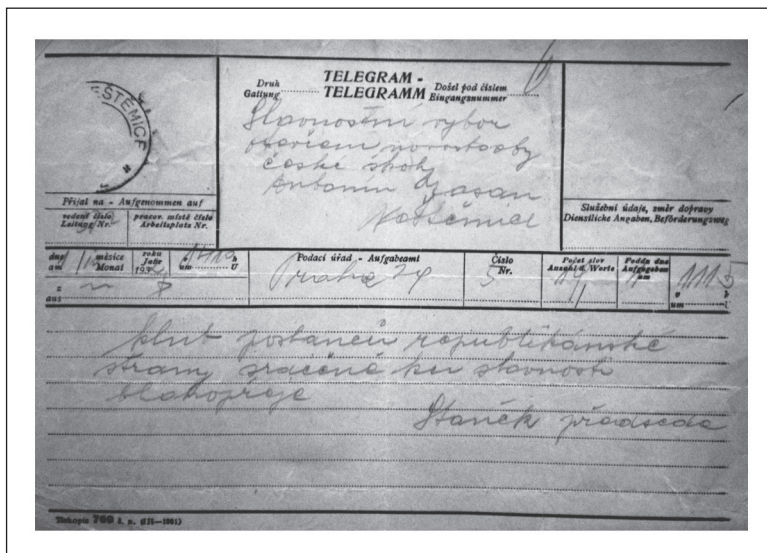 ŠTĚMICE
TELEGRAM -
Druh
TELEGRAMM
Došel pod číslem
Gattung
Eingangsnummer
Slavnostní výbor
otevření novostavby
české školy
Antonín
Přijal na - Aufgenommen auf
vedení číslo
Leitung Nr.
pracov. místě číslo
Arbeitsplatz Nr.
Služební údaje, směr dopravy
Dienstliche Angaben, Beförderungsweg
dne
am
měsíce
Monat
roku
Jahr
193
h
um
U
Podací úřad - Aufgabeamt
Praha
Číslo
Nr.
5
Počet slov
Anzahl d. Worte
11
Podán dne
Aufgegeben
um
z
aus
v
um
klub poslanců republikánské
strany srdečně ku slavnosti
blahopřeje
Staněk předseda
Tiskopis 760 č. n. (III—1931)